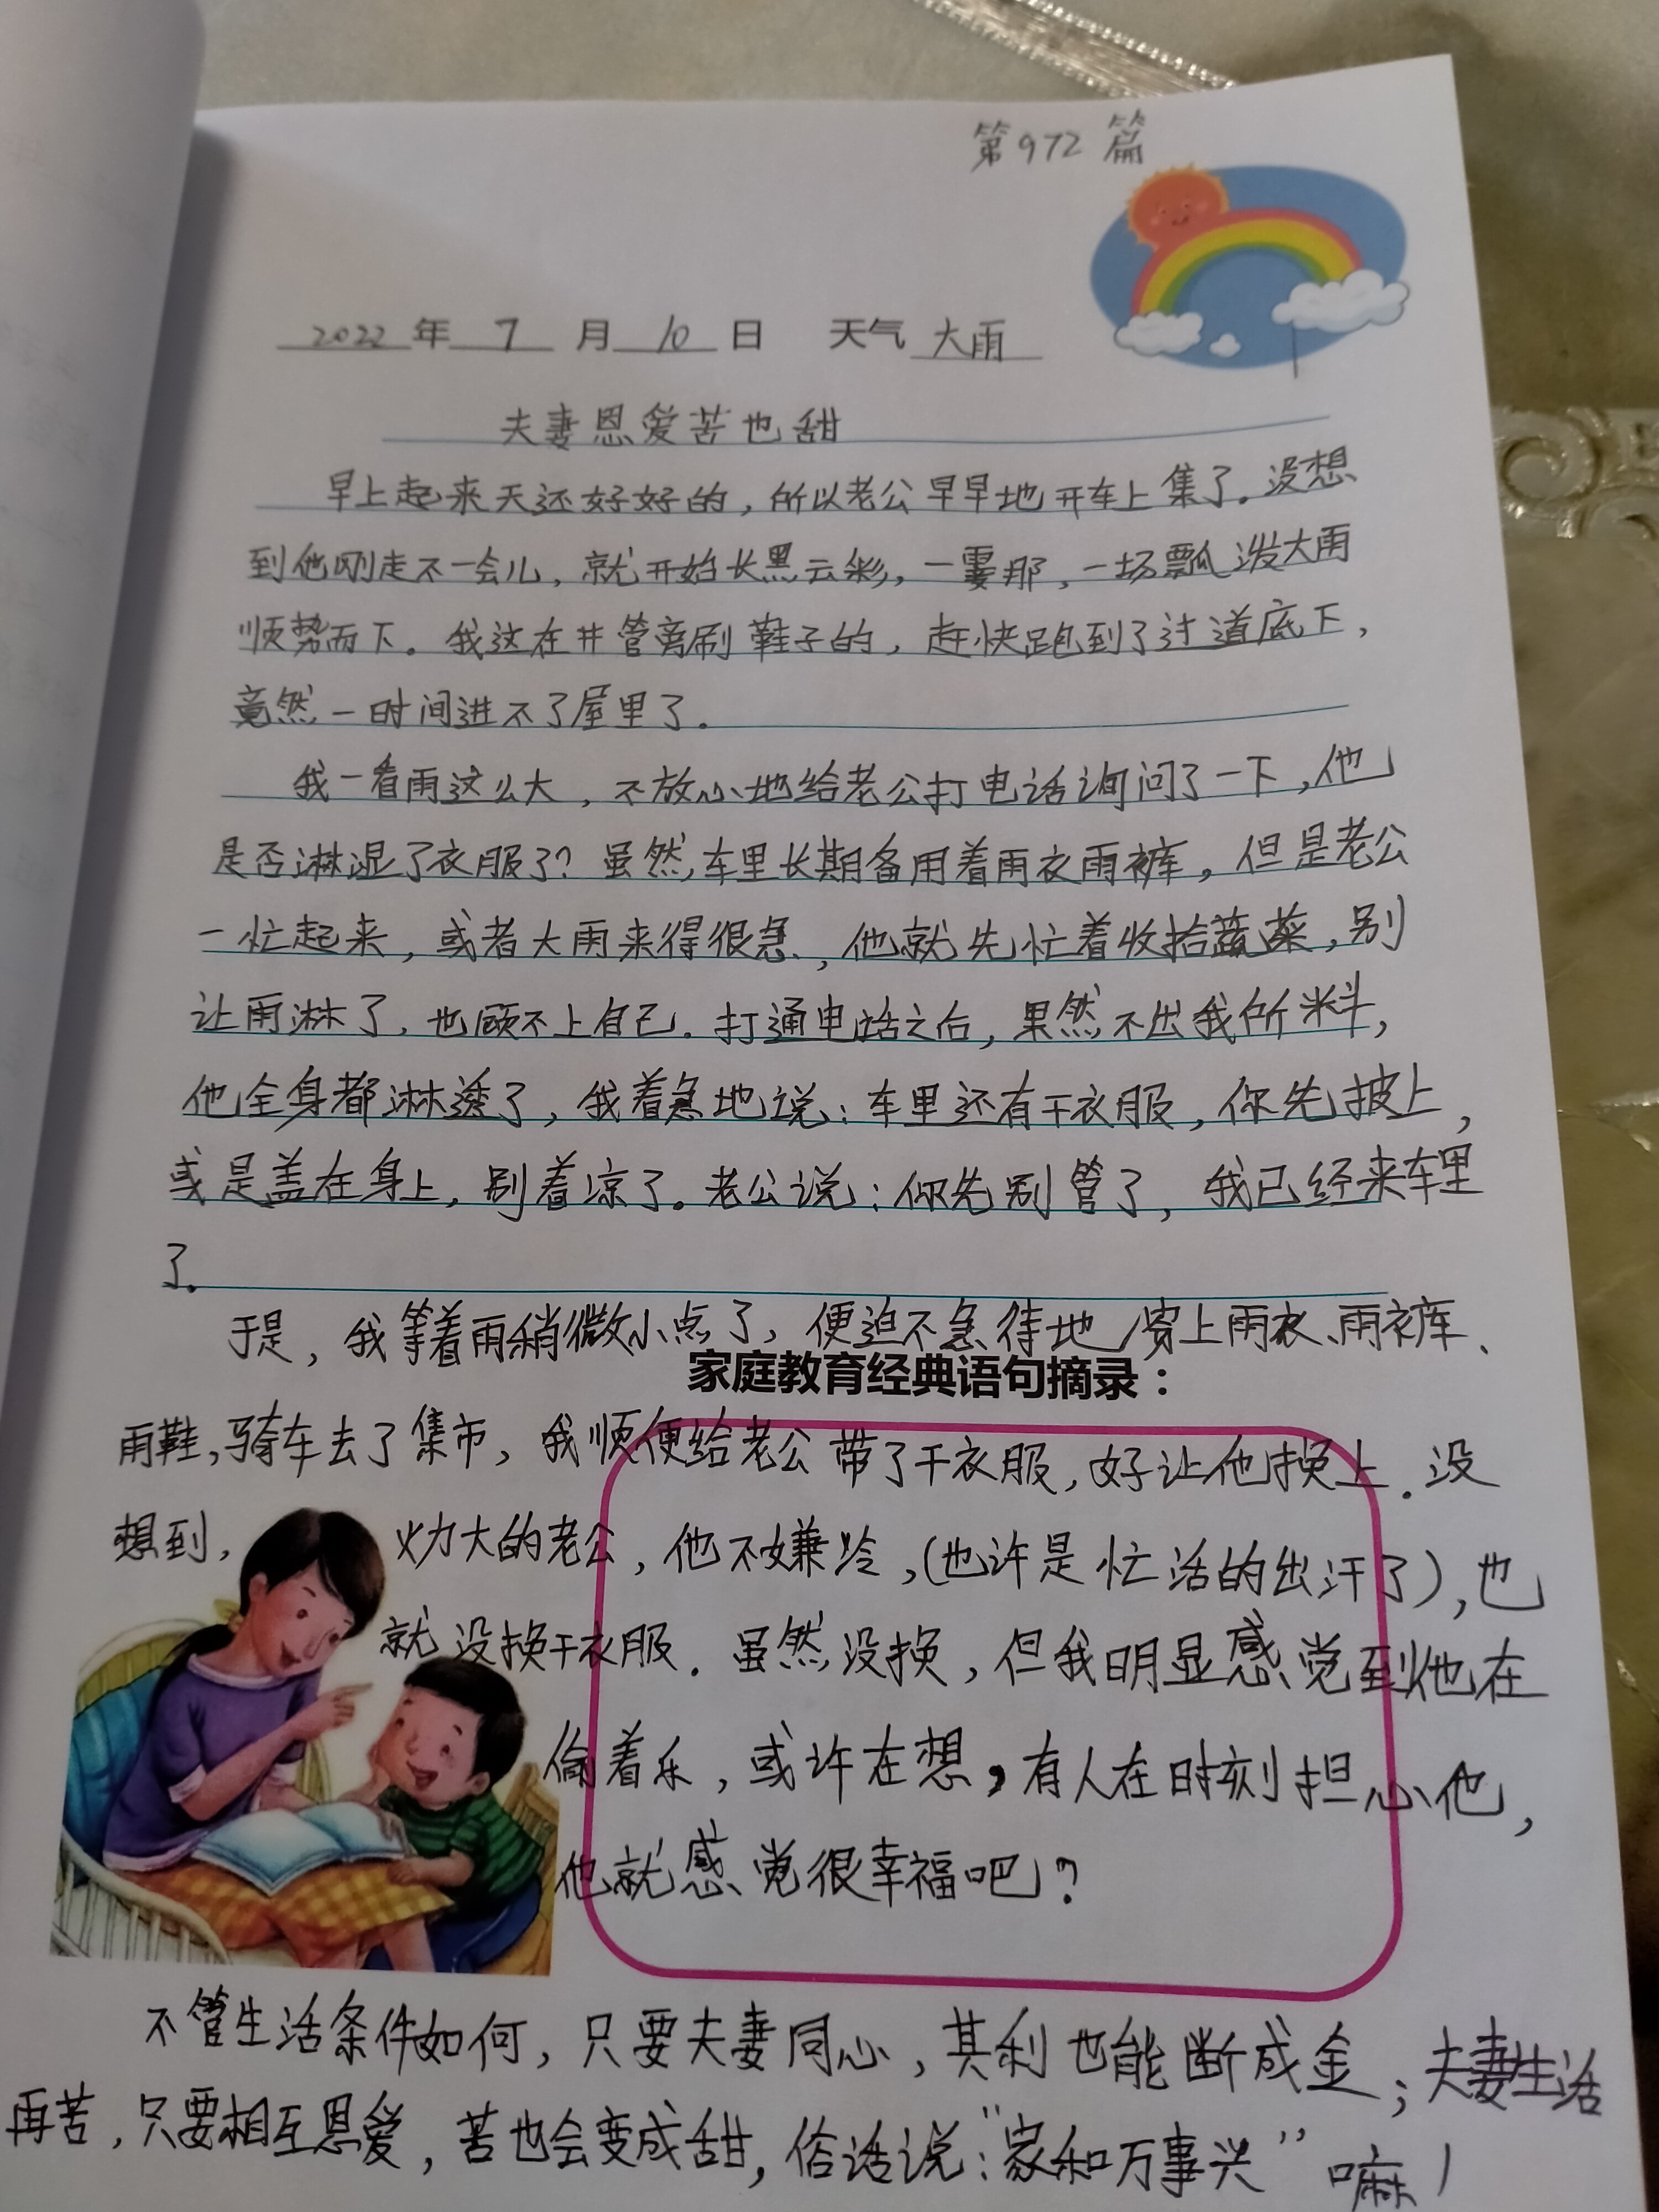 第972篇
2022年 7 月 10 日 天气 大雨
夫妻恩爱苦也甜
早上起来天还好好的，所以老公早早地开车上集了。没想
到他刚走不一会儿，就开始长黑云彩，一霎那，一场瓢泼大雨
顺势而下。我这在井管旁刷鞋子的，赶快跑到了过道底下，
竟然一时间进不了屋里了。
我一看雨这么大，不放心地给老公打电话询问了一下，他
是否淋湿了衣服了？虽然，车里长期备用着雨衣雨裤，但是老公
一忙起来，或者大雨来得很急，他就先忙着收拾蔬菜，别
让雨淋了，也顾不上自己。打通电话之后，果然不出我所料，
他全身都淋透了，我着急地说：车里还有干衣服，你先披上，
或是盖在身上，别着凉了。老公说：你先别管了，我已经来车里
了。
于是，我等着雨稍微小点了，便迫不急待地穿上雨衣、雨裤、
家庭教育经典语句摘录：
雨鞋，骑车去了集市，我顺便给老公带了干衣服，好让他换上。没
想到，火力大的老公，他不嫌冷，(也许是忙活的出汗了)，也
就没换干衣服。虽然没换，但我明显感觉到他在
偷着乐，或许在想，有人在时刻担心他，
他就感觉很幸福吧？
不管生活条件如何，只要夫妻同心，其利也能断成金；夫妻生活
再苦，只要相互恩爱，苦也会变成甜，俗话说：“家和万事兴”嘛！